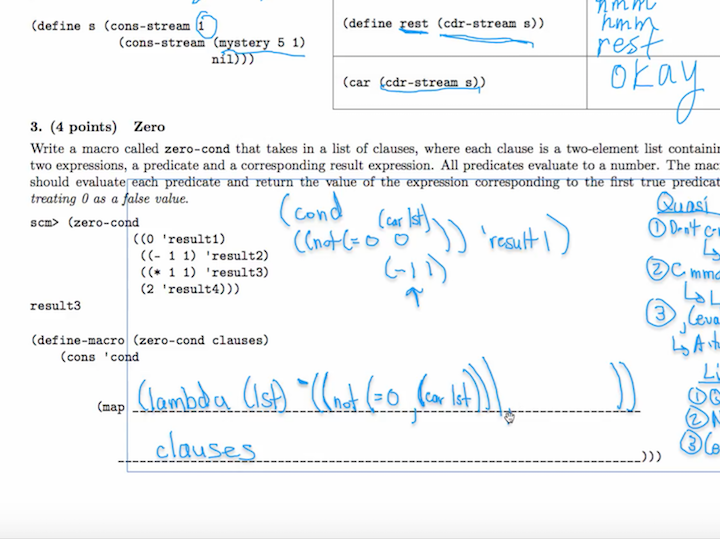 (define s (cons-stream 1
(cons-stream (mystery 5 1)
nil)))
(define rest (cdr-stream s))
hmm
hmm
rest
(car (cdr-stream s))
okay
3. (4 points) Zero
Write a macro called zero-cond that takes in a list of clauses, where each clause is a two-element list containin
two expressions, a predicate and a corresponding result expression. All predicates evaluate to a number. The mac
should evaluate each predicate and return the value of the expression corresponding to the first true predicat
treating 0 as a false value.
scm> (zero-cond
((0 'result1)
((- 1 1) 'result2)
((* 1 1) 'result3)
(2 'result4)))
result3
(cond (car lst)
((not (= 0 0 ))) 'result1)
(- 1 1)
Quasi
① Don't
②
③ ,(eva
Li
①
②
③
(define-macro (zero-cond clauses)
(cons 'cond
(map (lambda (lst) `((not (= 0 ,(car lst))) ))
clauses )))